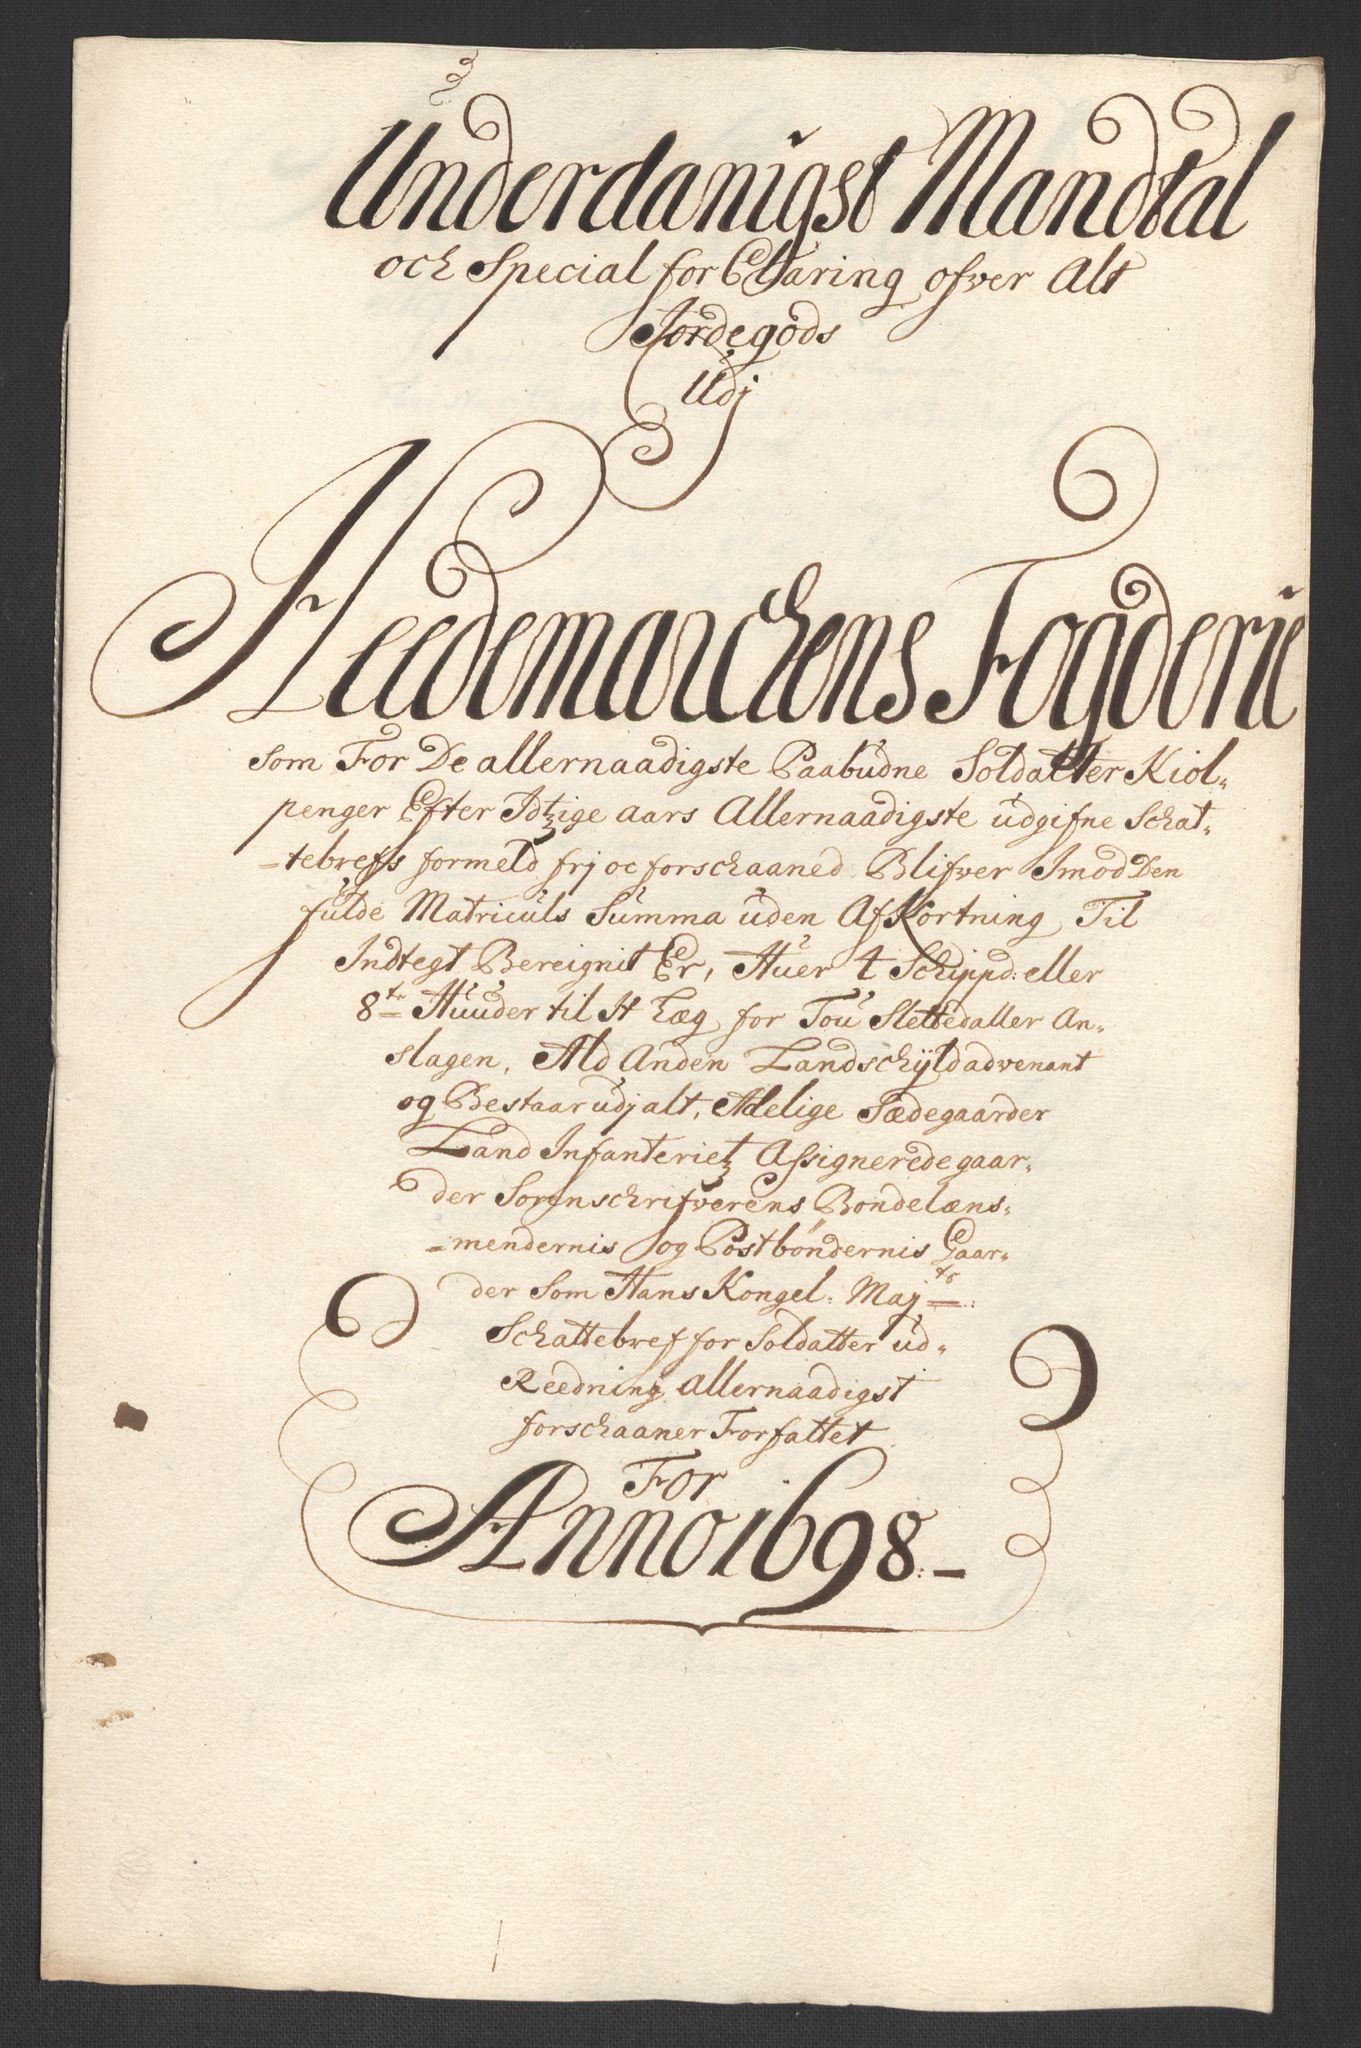 Underdanigst Mandtal
och Special forClaring ofver Alt
Jordegods
Udj
Heedemarchens Fogderie
som For De allernaadigste Paabudne Soldatter Kiol-
penger Efter Idtzige aars Allernaadigste udgifne Schat-
-tebrefs formeld frj oc forschaaned Blifver Imod Den
fulde Matriculs Summa uden AfKortning Til
Indtegt Bereignit Er, Huer 4 Schippd: eller
8te Huuder til It Læg for Tou Slettedaller An-
slagen, Ald Anden Landschÿld advenant
og Bestaar udj alt, Adelige Sædegaarder
Land Infanterietz Assignerede gaar-
der Sorenschrifverens Bondelæns-
-mendernis og Postböndernis Gaar-
der Som Hans Kongel: Majts:
Schattebref for Soldatter ud-
Reedning allernaadigst
forschaaner Forfattet
For
Anno 1698.-